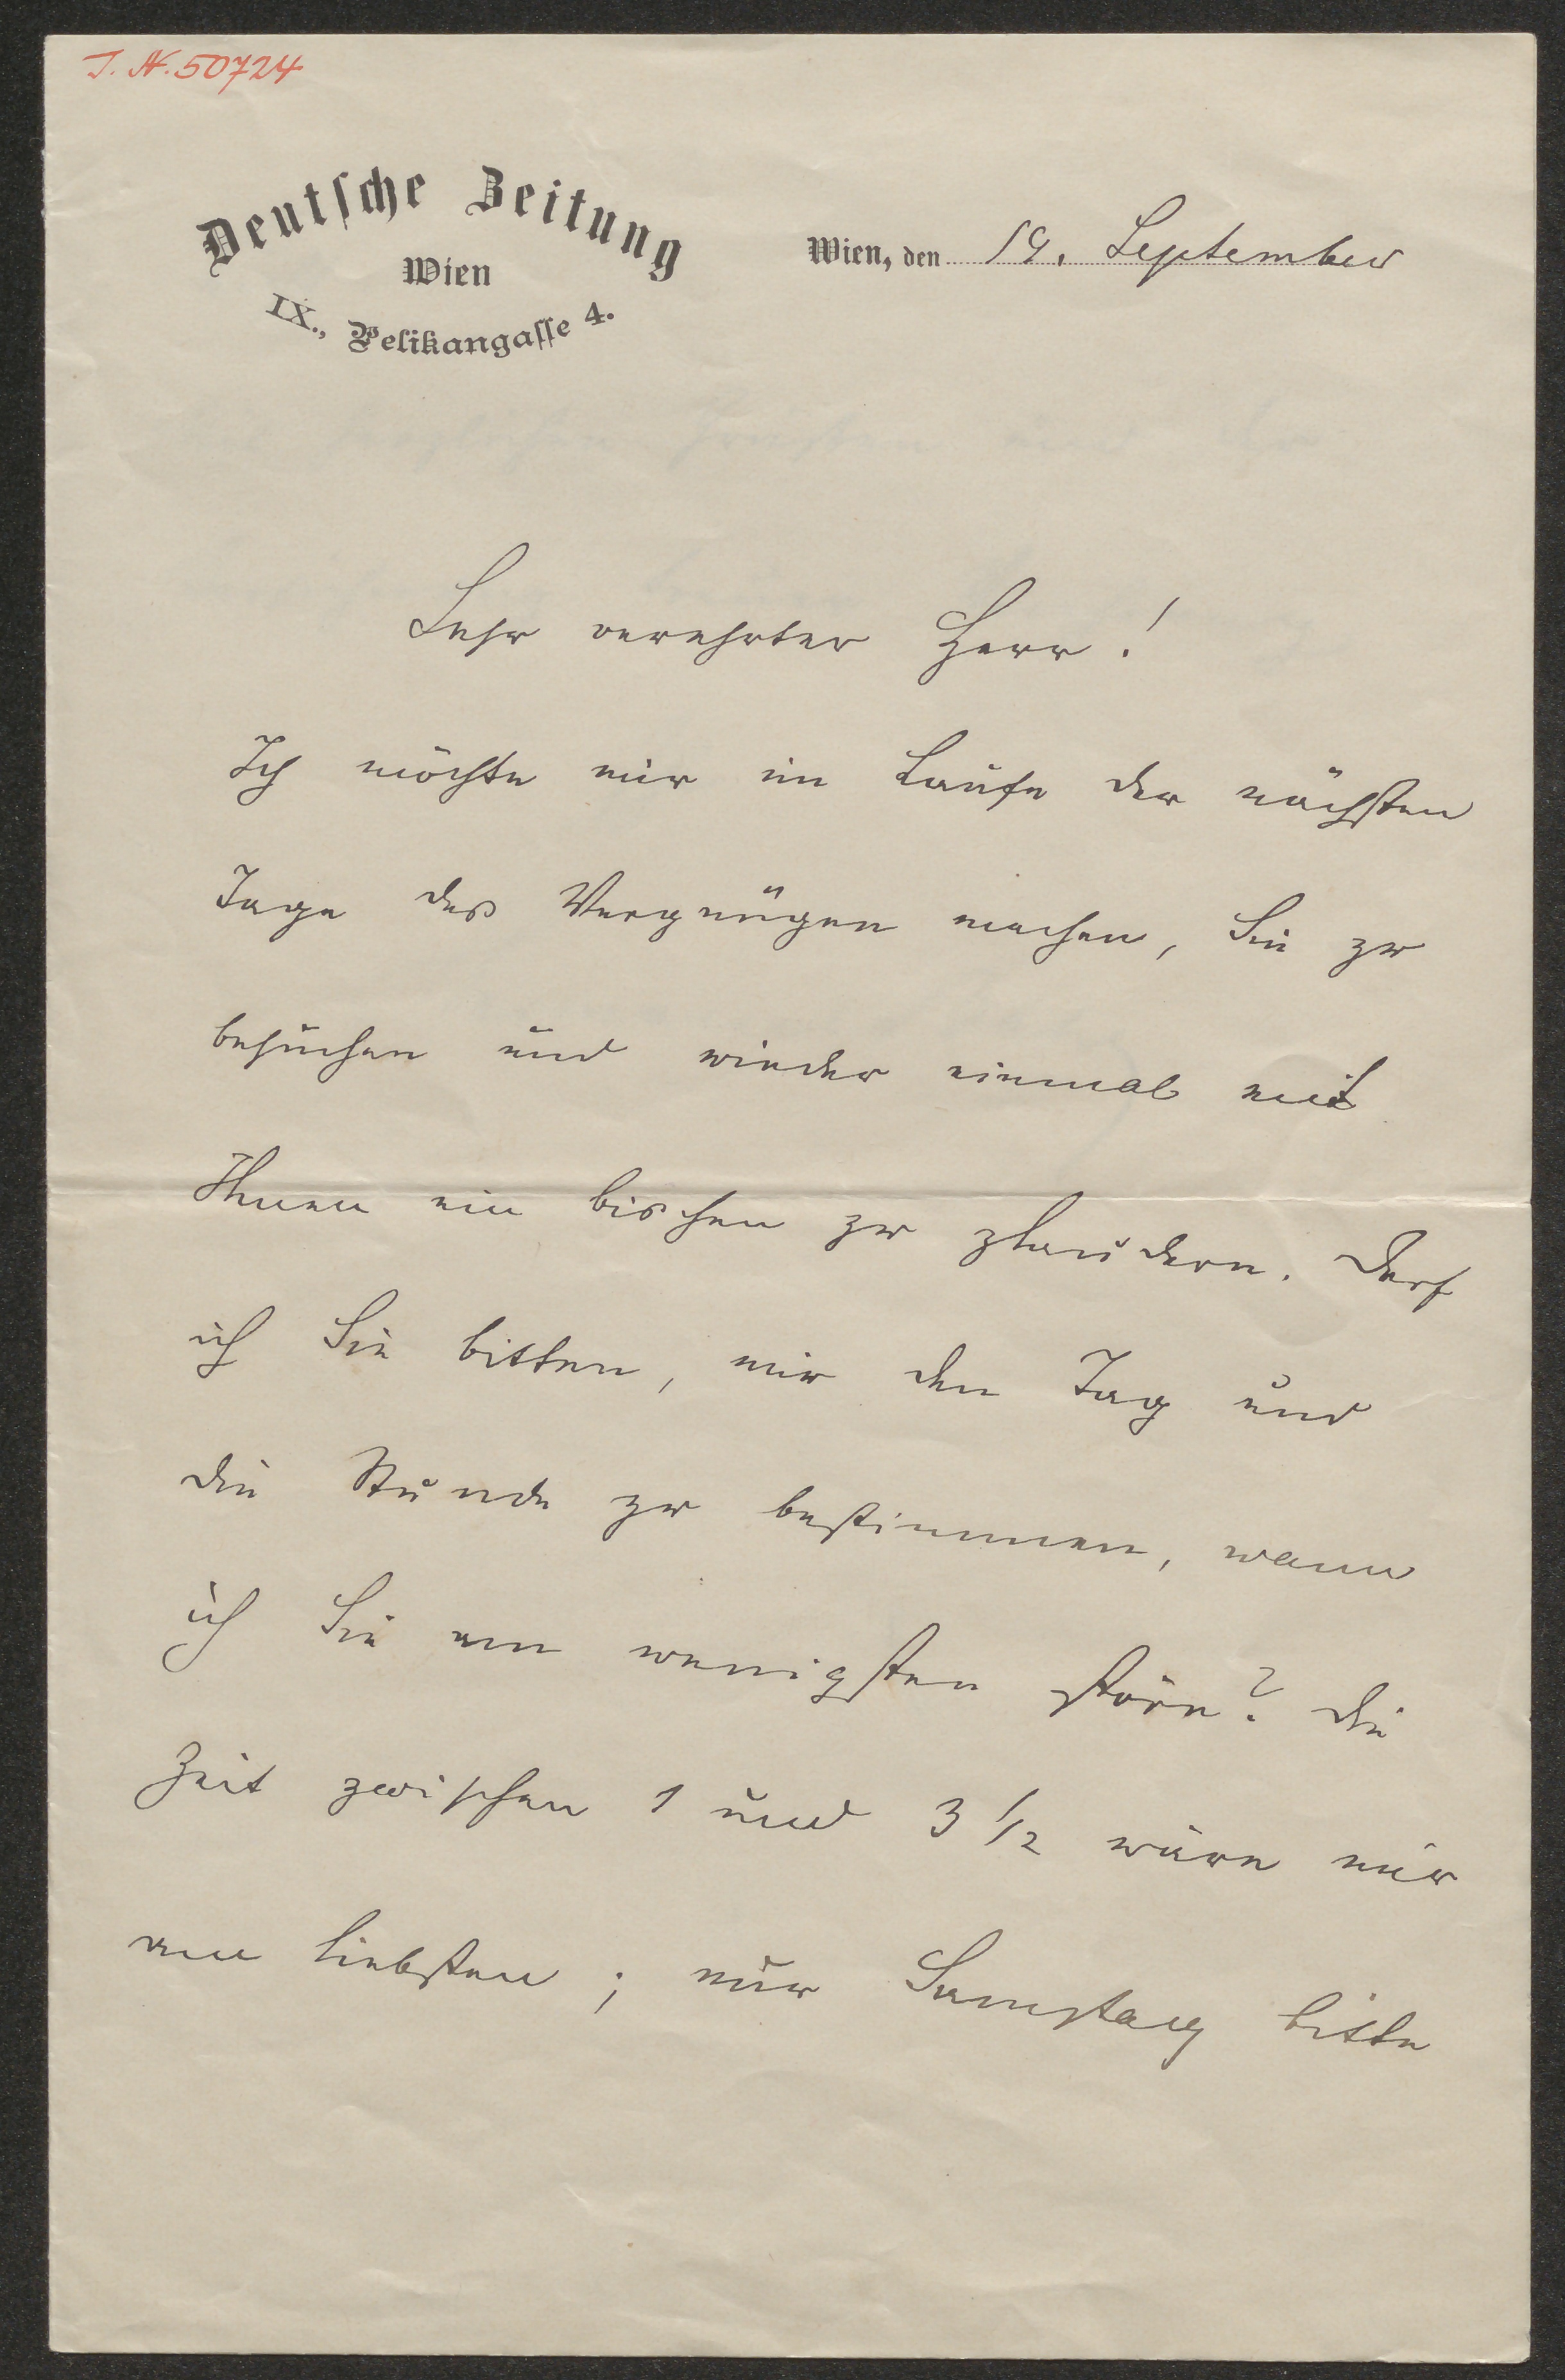 J. N. 50724
Deutsche Zeitung
Wien
IX., Pelikangasse 4.
Wien, den 19. September
Sehr verehrter Herr!
Ich möchte mir im Laufe der nächsten
Tage das Vergnügen machen, Sie zu
besuchen und wieder einmal mit
Ihnen ein bischen zu plaudern. Darf
ich Sie bitten, mir den Tag und
die Stunde zu bestimmen, wann
ich Sie am wenigsten störe? Die
Zeit zwischen 1 und 3 1/2 wäre mir
am liebsten; nur Samstag bitte